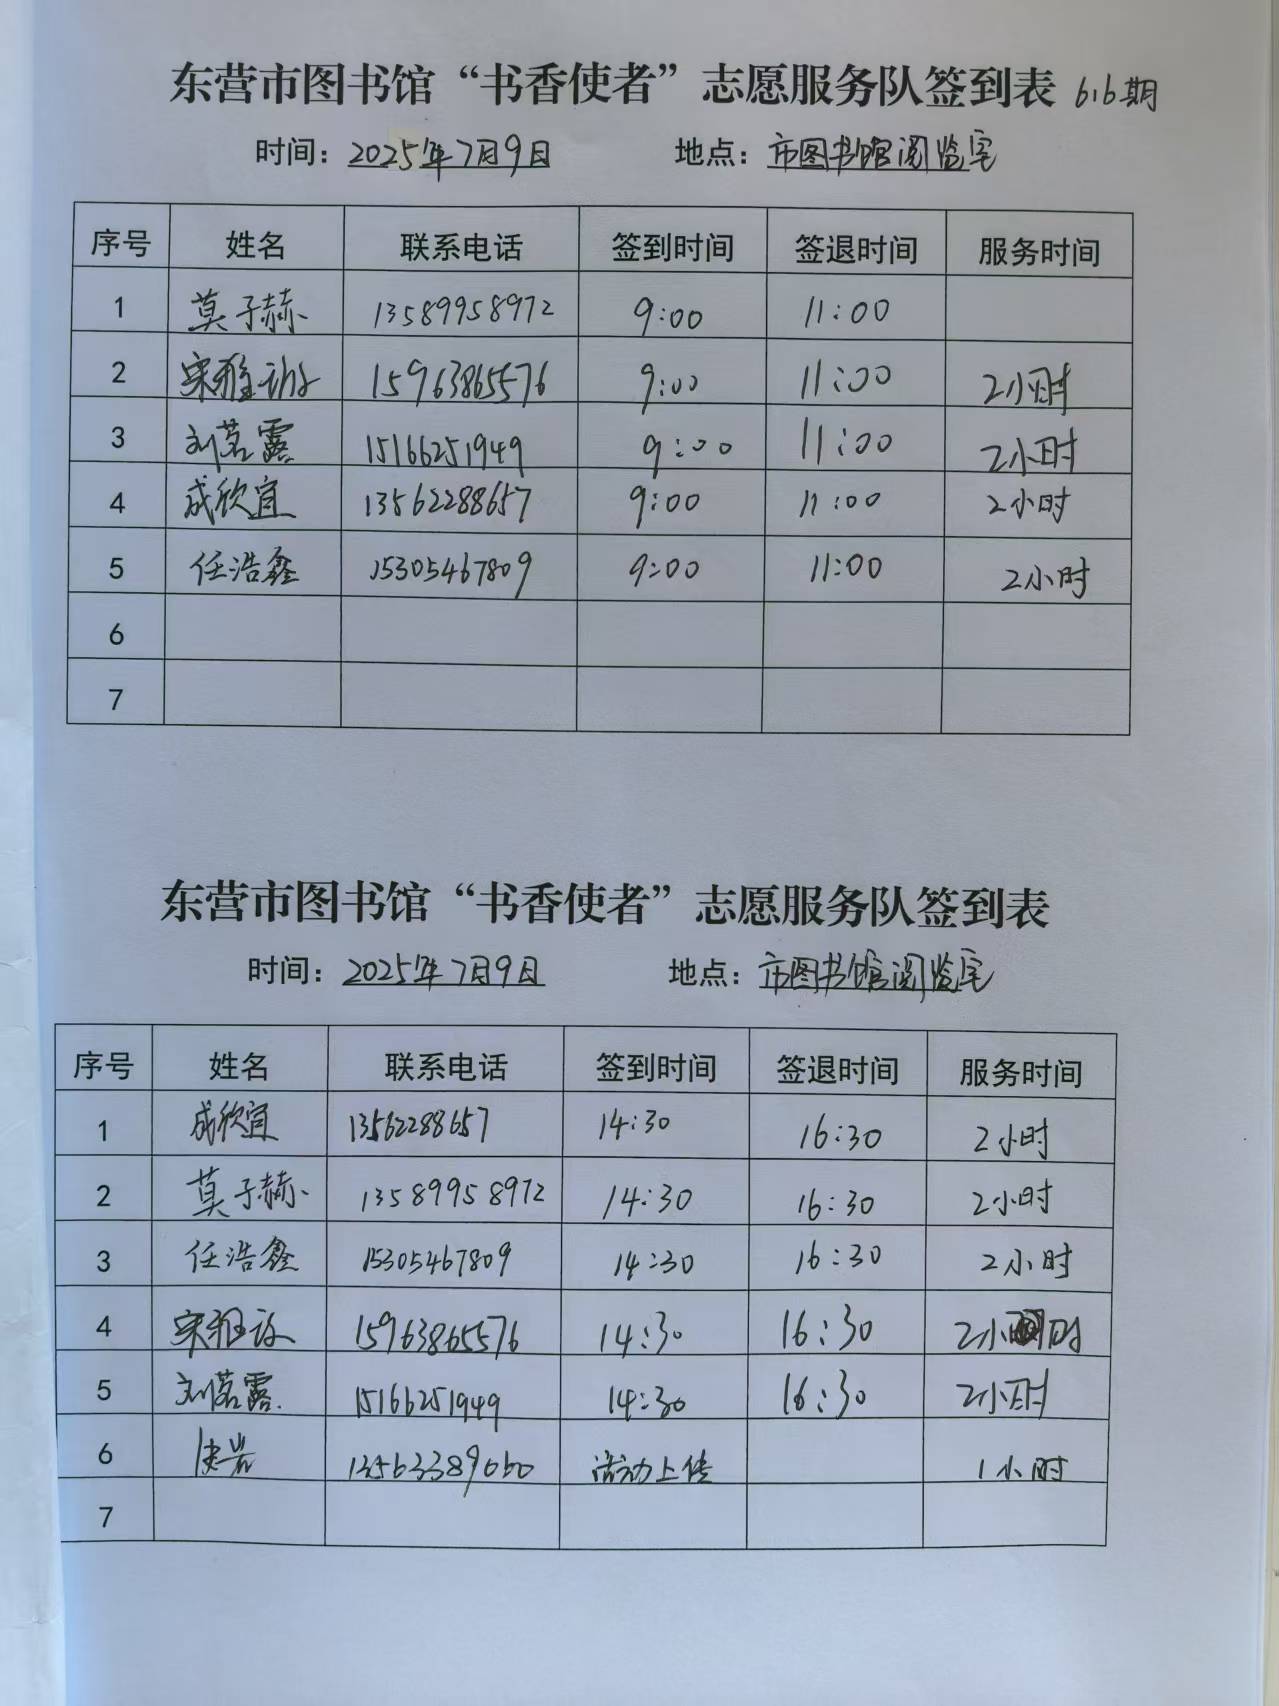 东营市图书馆“书香使者”志愿服务队签到表 616期
时间：2025年7月9日 地点：市图书馆阅览室
序号 姓名 联系电话 签到时间 签退时间 服务时间
1 莫子赫 13589958972 9:00 11:00
2 宋雅 15963865576 9:00 11:00 2小时
3 刘茗露 15166251949 9:00 11:00 2小时
4 成欣宜 13562288657 9:00 11:00 2小时
5 任浩鑫 15305467809 9:00 11:00 2小时
6
7
东营市图书馆“书香使者”志愿服务队签到表
时间：2025年7月9日 地点：市图书馆阅览室
序号 姓名 联系电话 签到时间 签退时间 服务时间
1 成欣宜 13562288657 14:30 16:30 2小时
2 莫子赫 13589958972 14:30 16:30 2小时
3 任浩鑫 15305467809 14:30 16:30 2小时
4 宋雅 15963865576 14:30 16:30 2小时
5 刘茗露 15166251949 14:30 16:30 2小时
6 岩 13563389060 活动上传 1小时
7